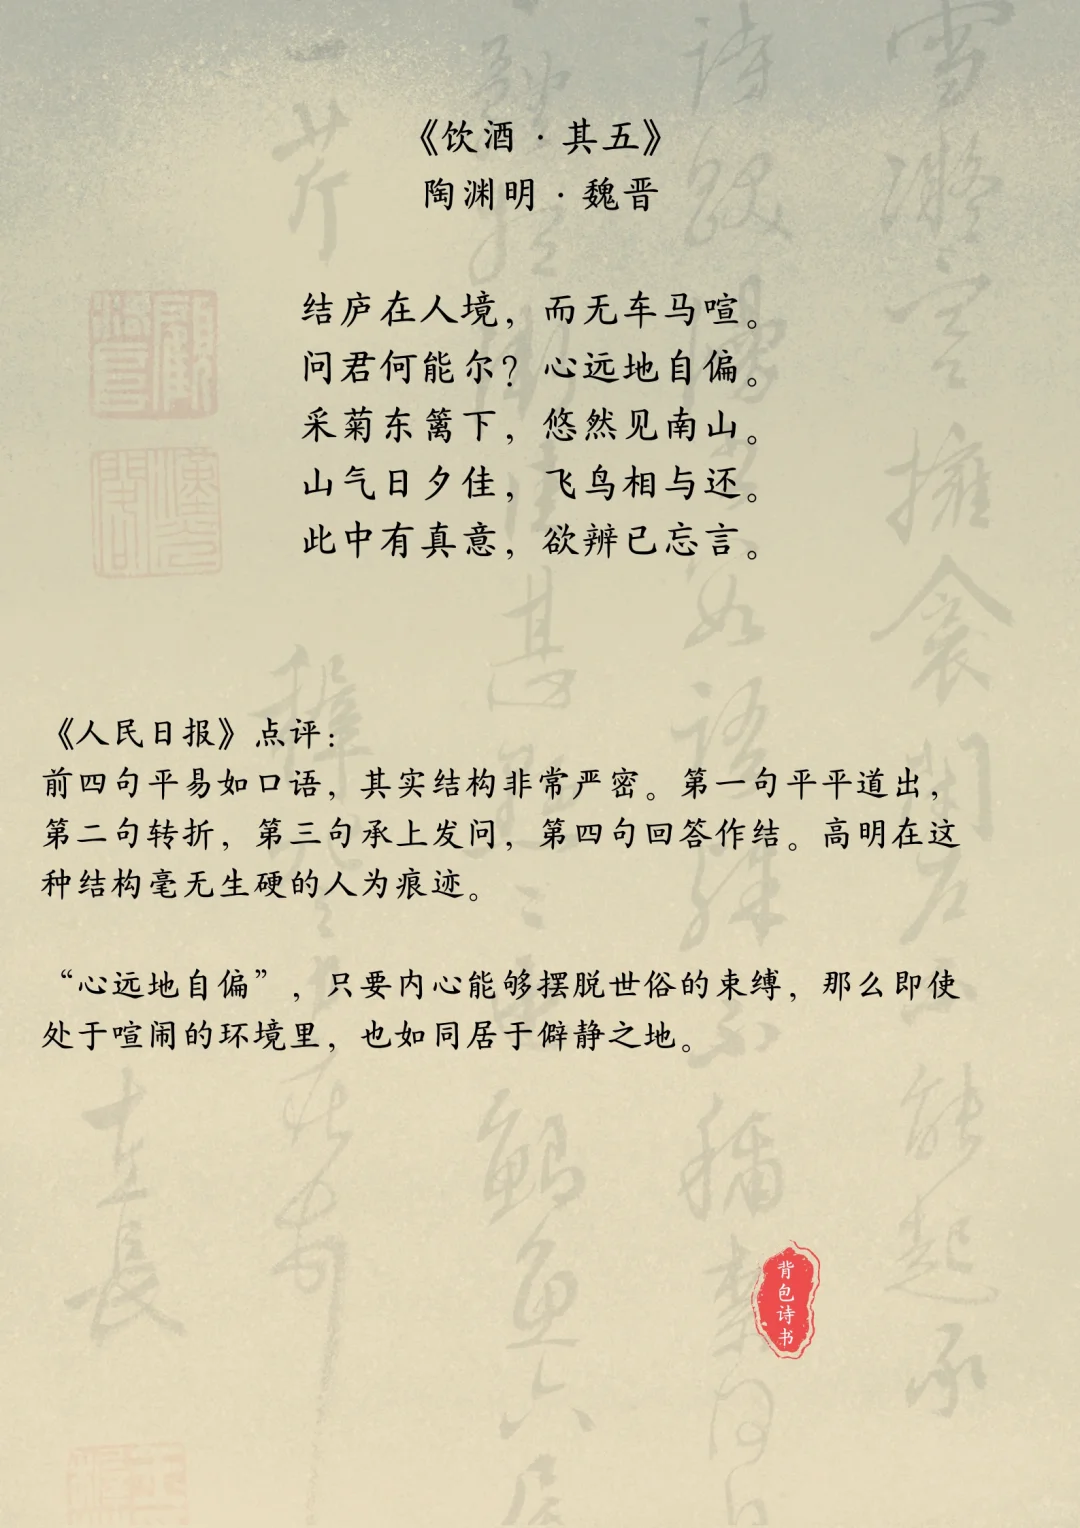 《饮酒·其五》
陶渊明·魏晋
结庐在人境，而无车马喧。
问君何能尔？心远地自偏。
采菊东篱下，悠然见南山。
山气日夕佳，飞鸟相与还。
此中有真意，欲辨已忘言。
《人民日报》点评：
前四句平易如口语，其实结构非常严密。第一句平平道出，
第二句转折，第三句承上发问，第四句回答作结。高明在这
种结构毫无生硬的人为痕迹。
“心远地自偏”，只要内心能够摆脱世俗的束缚，那么即使
处于喧闹的环境里，也如同居于僻静之地。
背包诗书